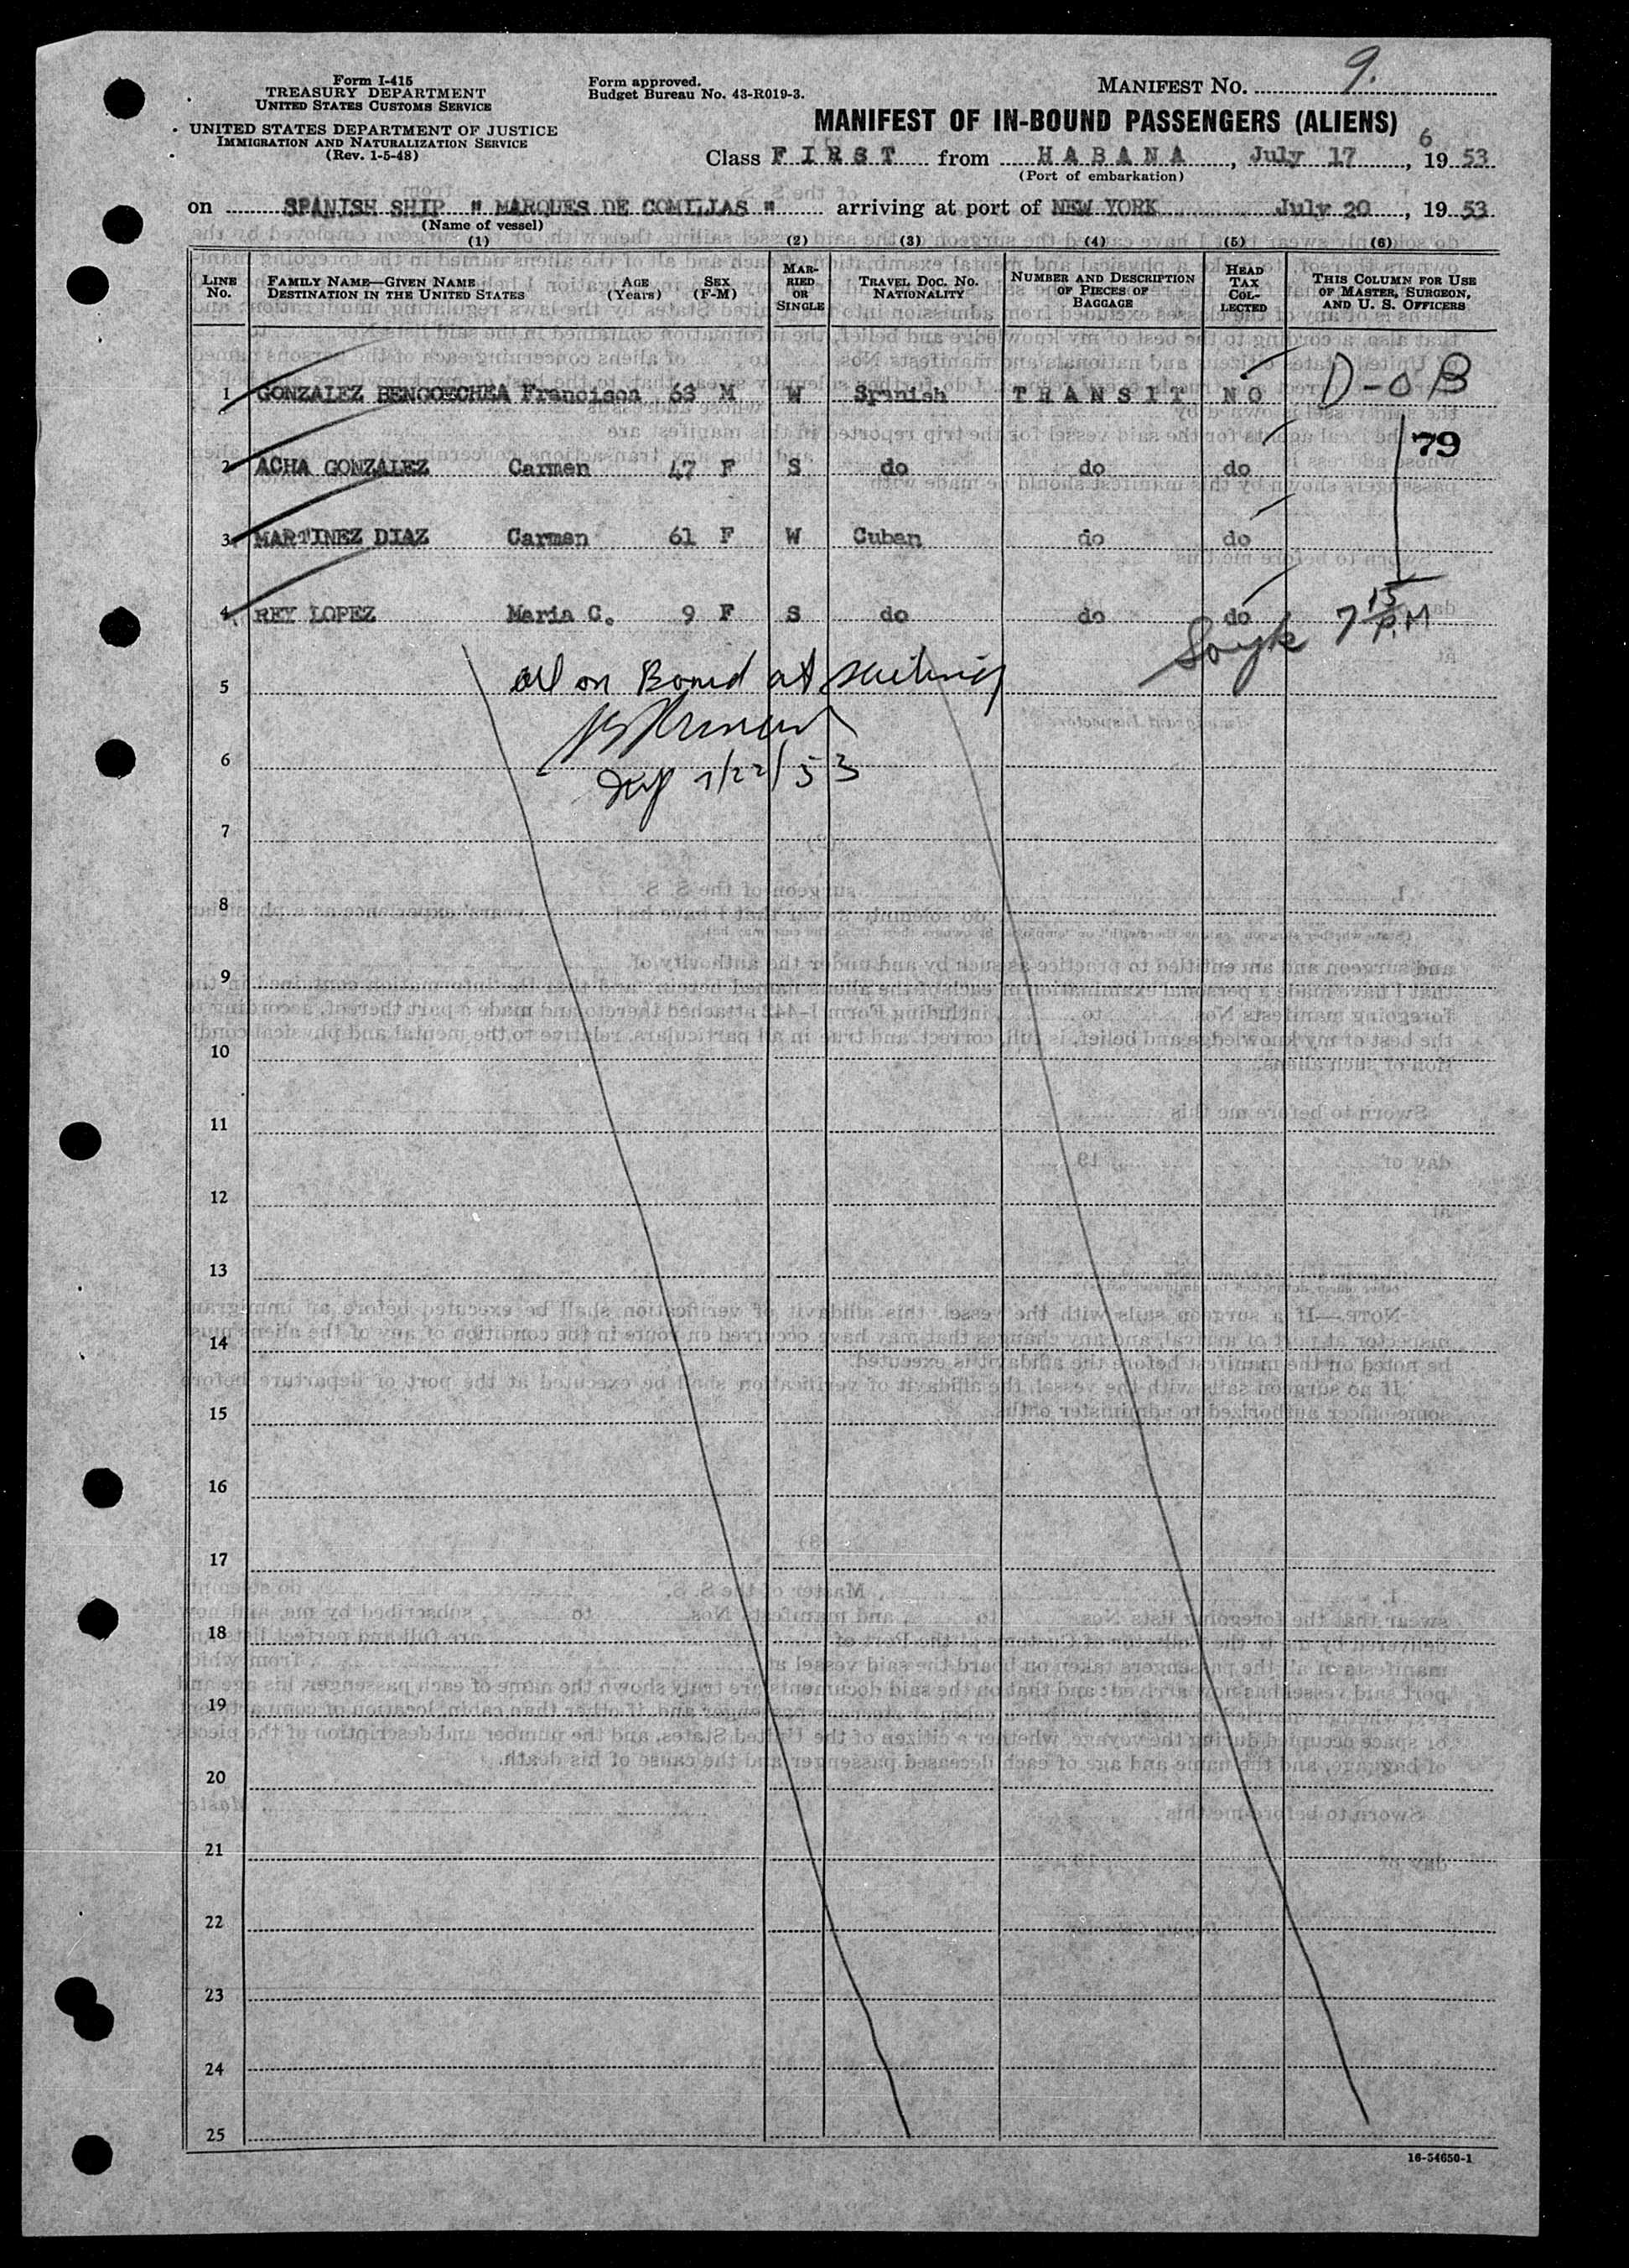 Form I-415
TREASURY DEPARTMENT
UNITED STATES CUSTOMS SERVICE
UNITED STATES DEPARTMENT OF JUSTICE
IMMIGRATION AND NATURALIZATION SERVICE
(Rev. 1-5-48)
Form approved.
Budget Bureau No. 43-R019-3.
MANIFEST No. 9.
MANIFEST OF IN-BOUND PASSENGERS (ALIENS)
6
Class FIRST from HABANA, July 17, 1953
(Port of embarkation)
on SPANISH SHIP "MARQUES DE COMILIAS" arriving at port of NEW YORK July 20, 1953
(Name of vessel)
(1) (2) (3) (4) (5) (6)
LINE No. FAMILY NAME—GIVEN NAME DESTINATION IN THE UNITED STATES AGE (Years) SEX (F-M) MARRIED OR SINGLE TRAVEL DOC. NO. NATIONALITY NUMBER AND DESCRIPTION OF PIECES OF BAGGAGE HEAD TAX COLLECTED THIS COLUMN FOR USE OF MASTER, SURGEON, AND U. S. OFFICERS
1 GONZALEZ BENGOECHEA Francisco 63 M W Spanish TRANSIT NO D-OB
79
2 ACHA GONZALEZ Carmen 47 F S do do do
3 MARTINEZ DIAZ Carmen 61 F W Cuban do do
4 REY LOPEZ Maria C. 9 F S do do do
7 15 P.M
5 all on Board at sailing
6
7/22/53
7
8
9
10
11
12
13
14
15
16
17
18
19
20
21
22
23
24
25
16-54650-1